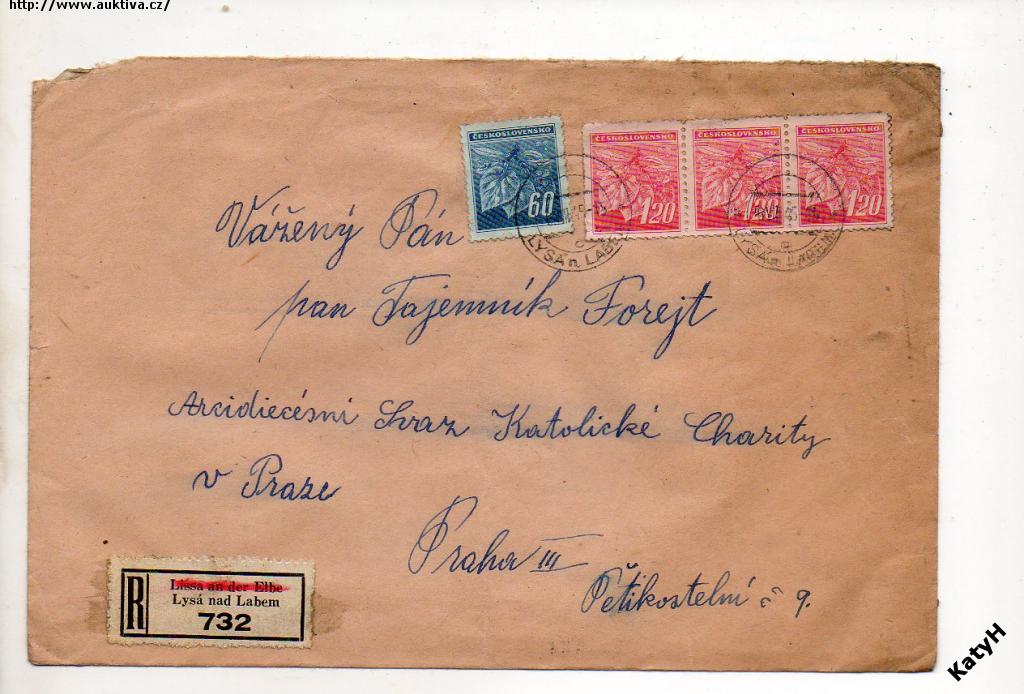 http://www.auktiva.cz/
ČESKOSLOVENSKO
60
ČESKOSLOVENSKO
1.20
ČESKOSLOVENSKO
1.20
ČESKOSLOVENSKO
1.20
LYSÁ n. LABEM
LYSÁ n. LABEM
Vážený Pán
pan Tajemník Forejt
Arcidiecésní Svaz Katolické Charity
v Praze
Praha III
Pětikostelní č 9.
R
Lissa an der Elbe
Lysá nad Labem
732
KatyH